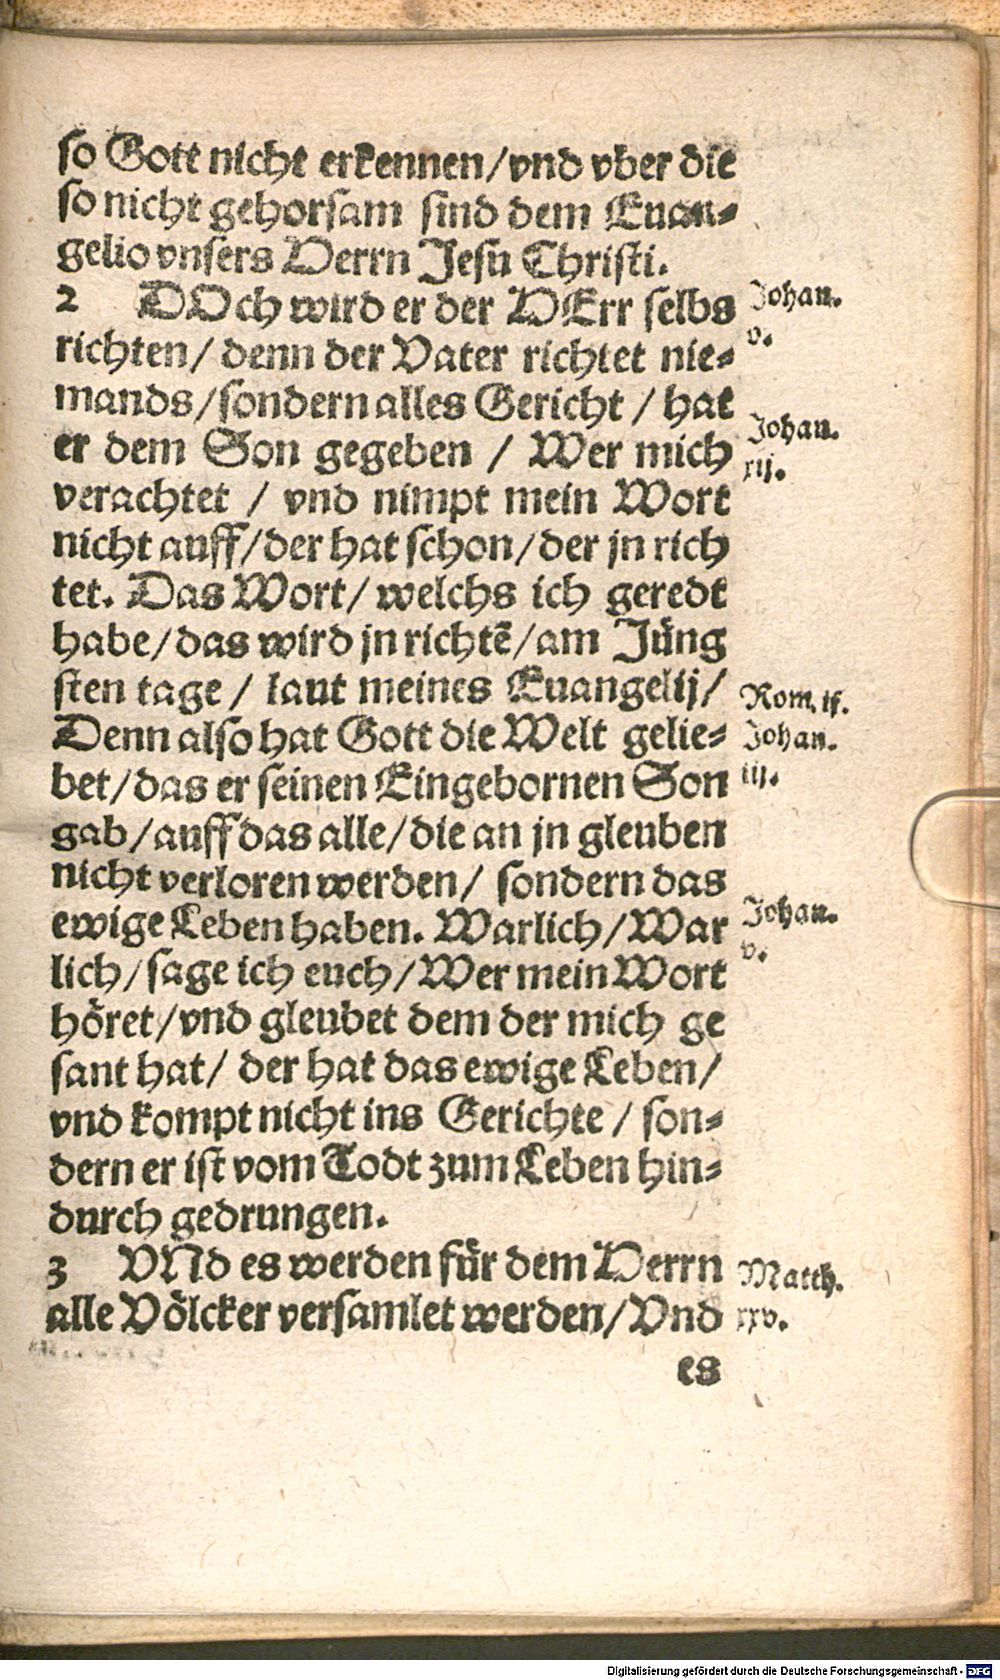 so Gott nicht erkennen/vnd vber die
so nicht gehorsam sind dem Euan-
gelio vnsers Herrn Jesu Christi.
2 DOch wird er der HErr selbs
Johan.
v.
richten/ denn der Vater richtet nie-
mands/sondern alles Gericht / hat
er dem Son gegeben / Wer mich
Johan.
xij.
verachtet / vnd nimpt mein Wort
nicht auff/der hat schon/der jn rich
tet. Das Wort/ welchs ich geredt
habe/das wird jn richtē/am Jüng
sten tage / laut meines Euangelij/
Rom. ij.
Denn also hat Gott die Welt gelie-
Johan.
iij.
bet/das er seinen Eingebornen Son
gab/auff das alle/die an jn gleuben
nicht verloren werden/ sondern das
ewige Leben haben. Warlich/War
Johan.
v.
lich/sage ich euch/Wer mein Wort
höret/vnd gleubet dem der mich ge
sant hat/ der hat das ewige Leben/
vnd kompt nicht ins Gerichte / son-
dern er ist vom Todt zum Leben hin-
durch gedrungen.
3 VNd es werden für dem Herrn
Matth.
xxv.
alle Völcker versamlet werden/Vnd
es
Digitalisierung gefördert durch die Deutsche Forschungsgemeinschaft - DFG